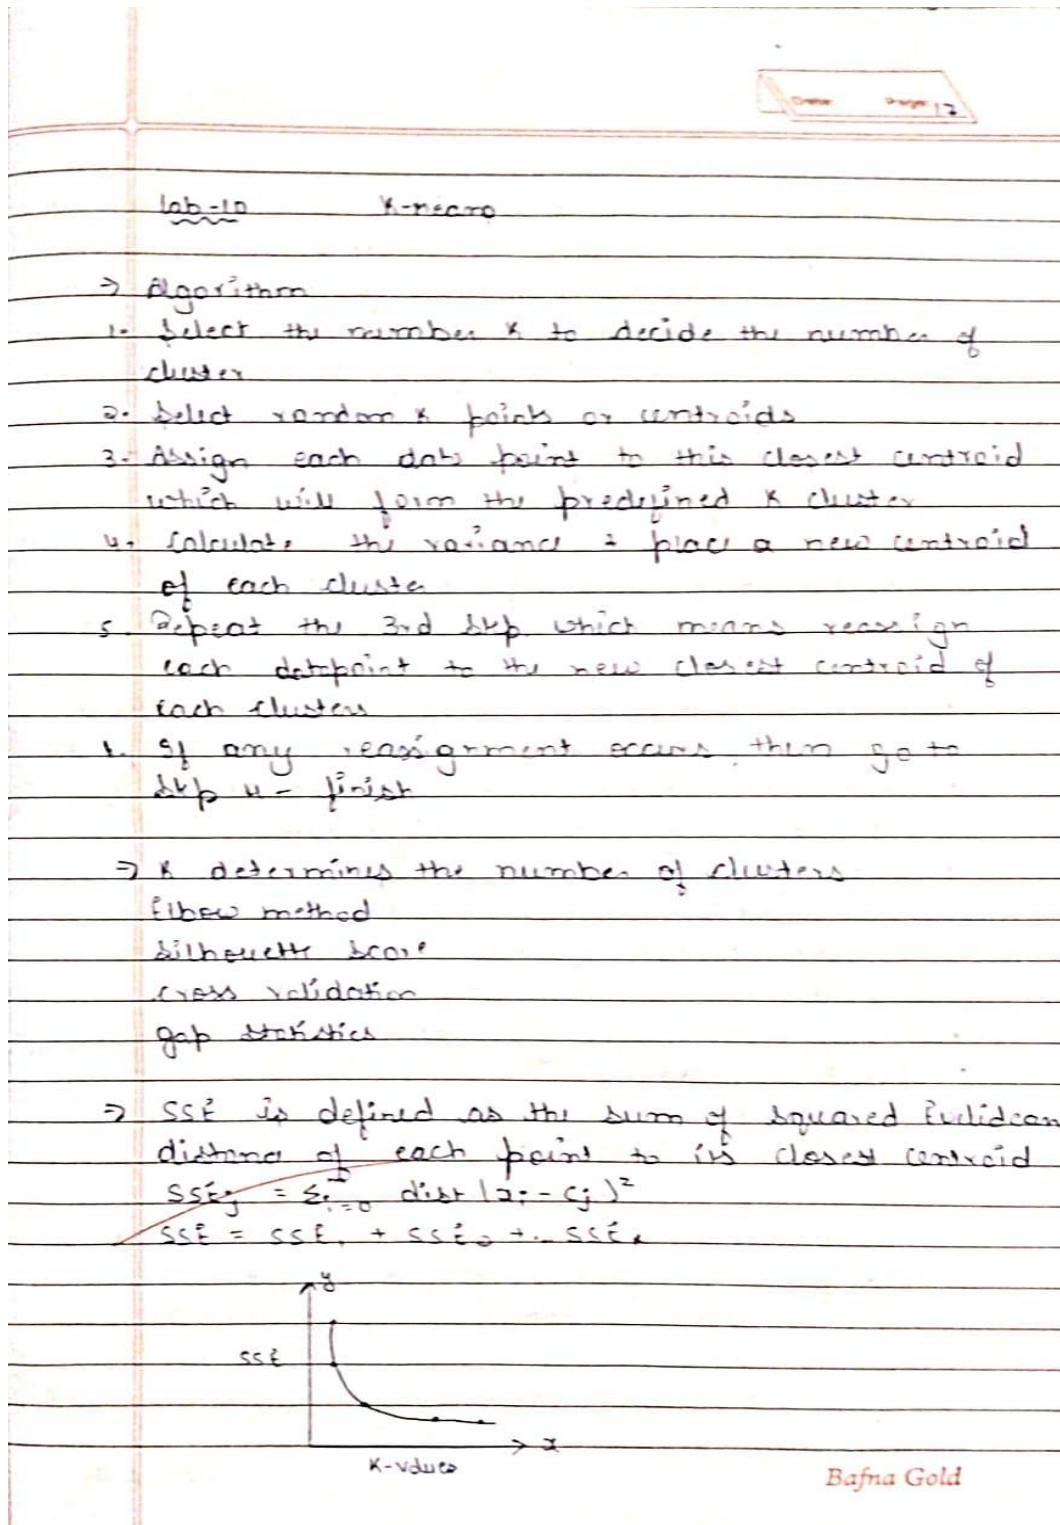 Lab-10 K-means
→ Algorithm
1. Select the number K to decide the number of
cluster
2. Select random K points or centroids
3. Assign each data point to this closest centroid
which will form the predefined K cluster
4. Calculate the variance & place a new centroid
of each cluster
5. Repeat the 3rd step which means reassign
each datapoint to the new closest centroid of
each clusters
6. If any reassignment occurs then go to
step 4 - finish
→ K determines the number of clusters
Elbow method
Silhouette score
cross validation
gap statistics
→ SSE is defined as the sum of squared Euclidean
distance of each point to its closest centroid
SSEj = Σi=0 dist (xi - cj)²
SSE = SSE1 + SSE2 + .. SSEk
y
SSE
x
K-values
Bafna Gold